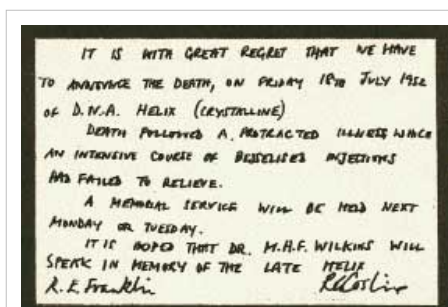 IT IS WITH GREAT REGRET THAT WE HAVE
TO ANNOUNCE THE DEATH, ON FRIDAY 18TH JULY 1952
OF D.N.A. HELIX (CRYSTALLINE)
DEATH FOLLOWED A PROTRACTED ILLNESS WHICH
AN INTENSIVE COURSE OF BESSELISED INJECTIONS
HAD FAILED TO RELIEVE.
A MEMORIAL SERVICE WILL BE HELD NEXT
MONDAY OR TUESDAY.
IT IS HOPED THAT DR. M.H.F. WILKINS WILL
SPEAK IN MEMORY OF THE LATE HELIX
R.E. Franklin R.G. Gosling